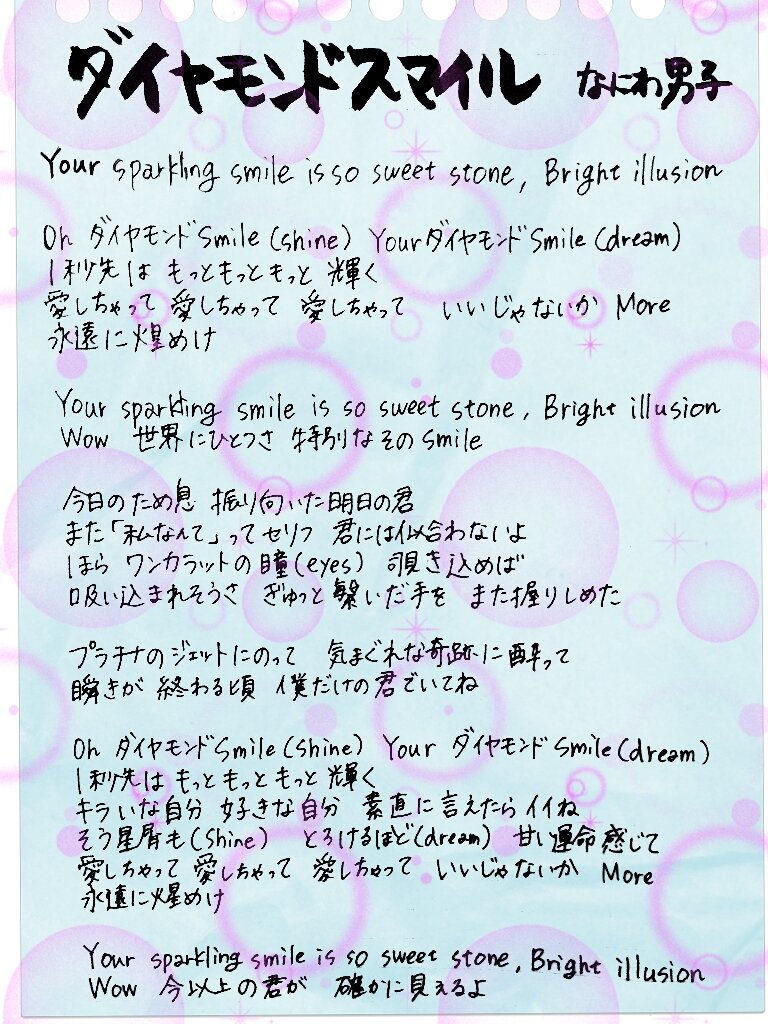 ダイヤモンドスマイル なにわ男子
Your sparkling smile is so sweet stone, Bright illusion
Oh ダイヤモンドSmile (shine) YourダイヤモンドSmile (dream)
1秒先は もっともっともっと 輝く
愛しちゃって 愛しちゃって 愛しちゃって いいじゃないか More
永遠に煌めけ
Your sparkling smile is so sweet stone, Bright illusion
Wow 世界にひとつさ 特別なそのSmile
今日のため息 振り向いた明日の君
また「私なんて」ってセリフ 君には似合わないよ
ほら ワンカラットの瞳(eyes) 覗き込めば
吸い込まれそうさ ぎゅっと 繋いだ手を また握りしめた
プラチナのジェットにのって 気まぐれな奇跡に酔って
瞬きが 終わる頃 僕だけの君でいてね
Oh ダイヤモンドSmile (shine) Your ダイヤモンドSmile (dream)
1秒先は もっともっともっと 輝く
キライな自分 好きな自分 素直に言えたらイイね
そう星屑も (shine) とろけるほど (dream) 甘い運命感じて
愛しちゃって 愛しちゃって 愛しちゃって いいじゃないか More
永遠に煌めけ
Your sparkling smile is so sweet stone, Bright illusion
Wow 今以上の君が 確かに見えるよ